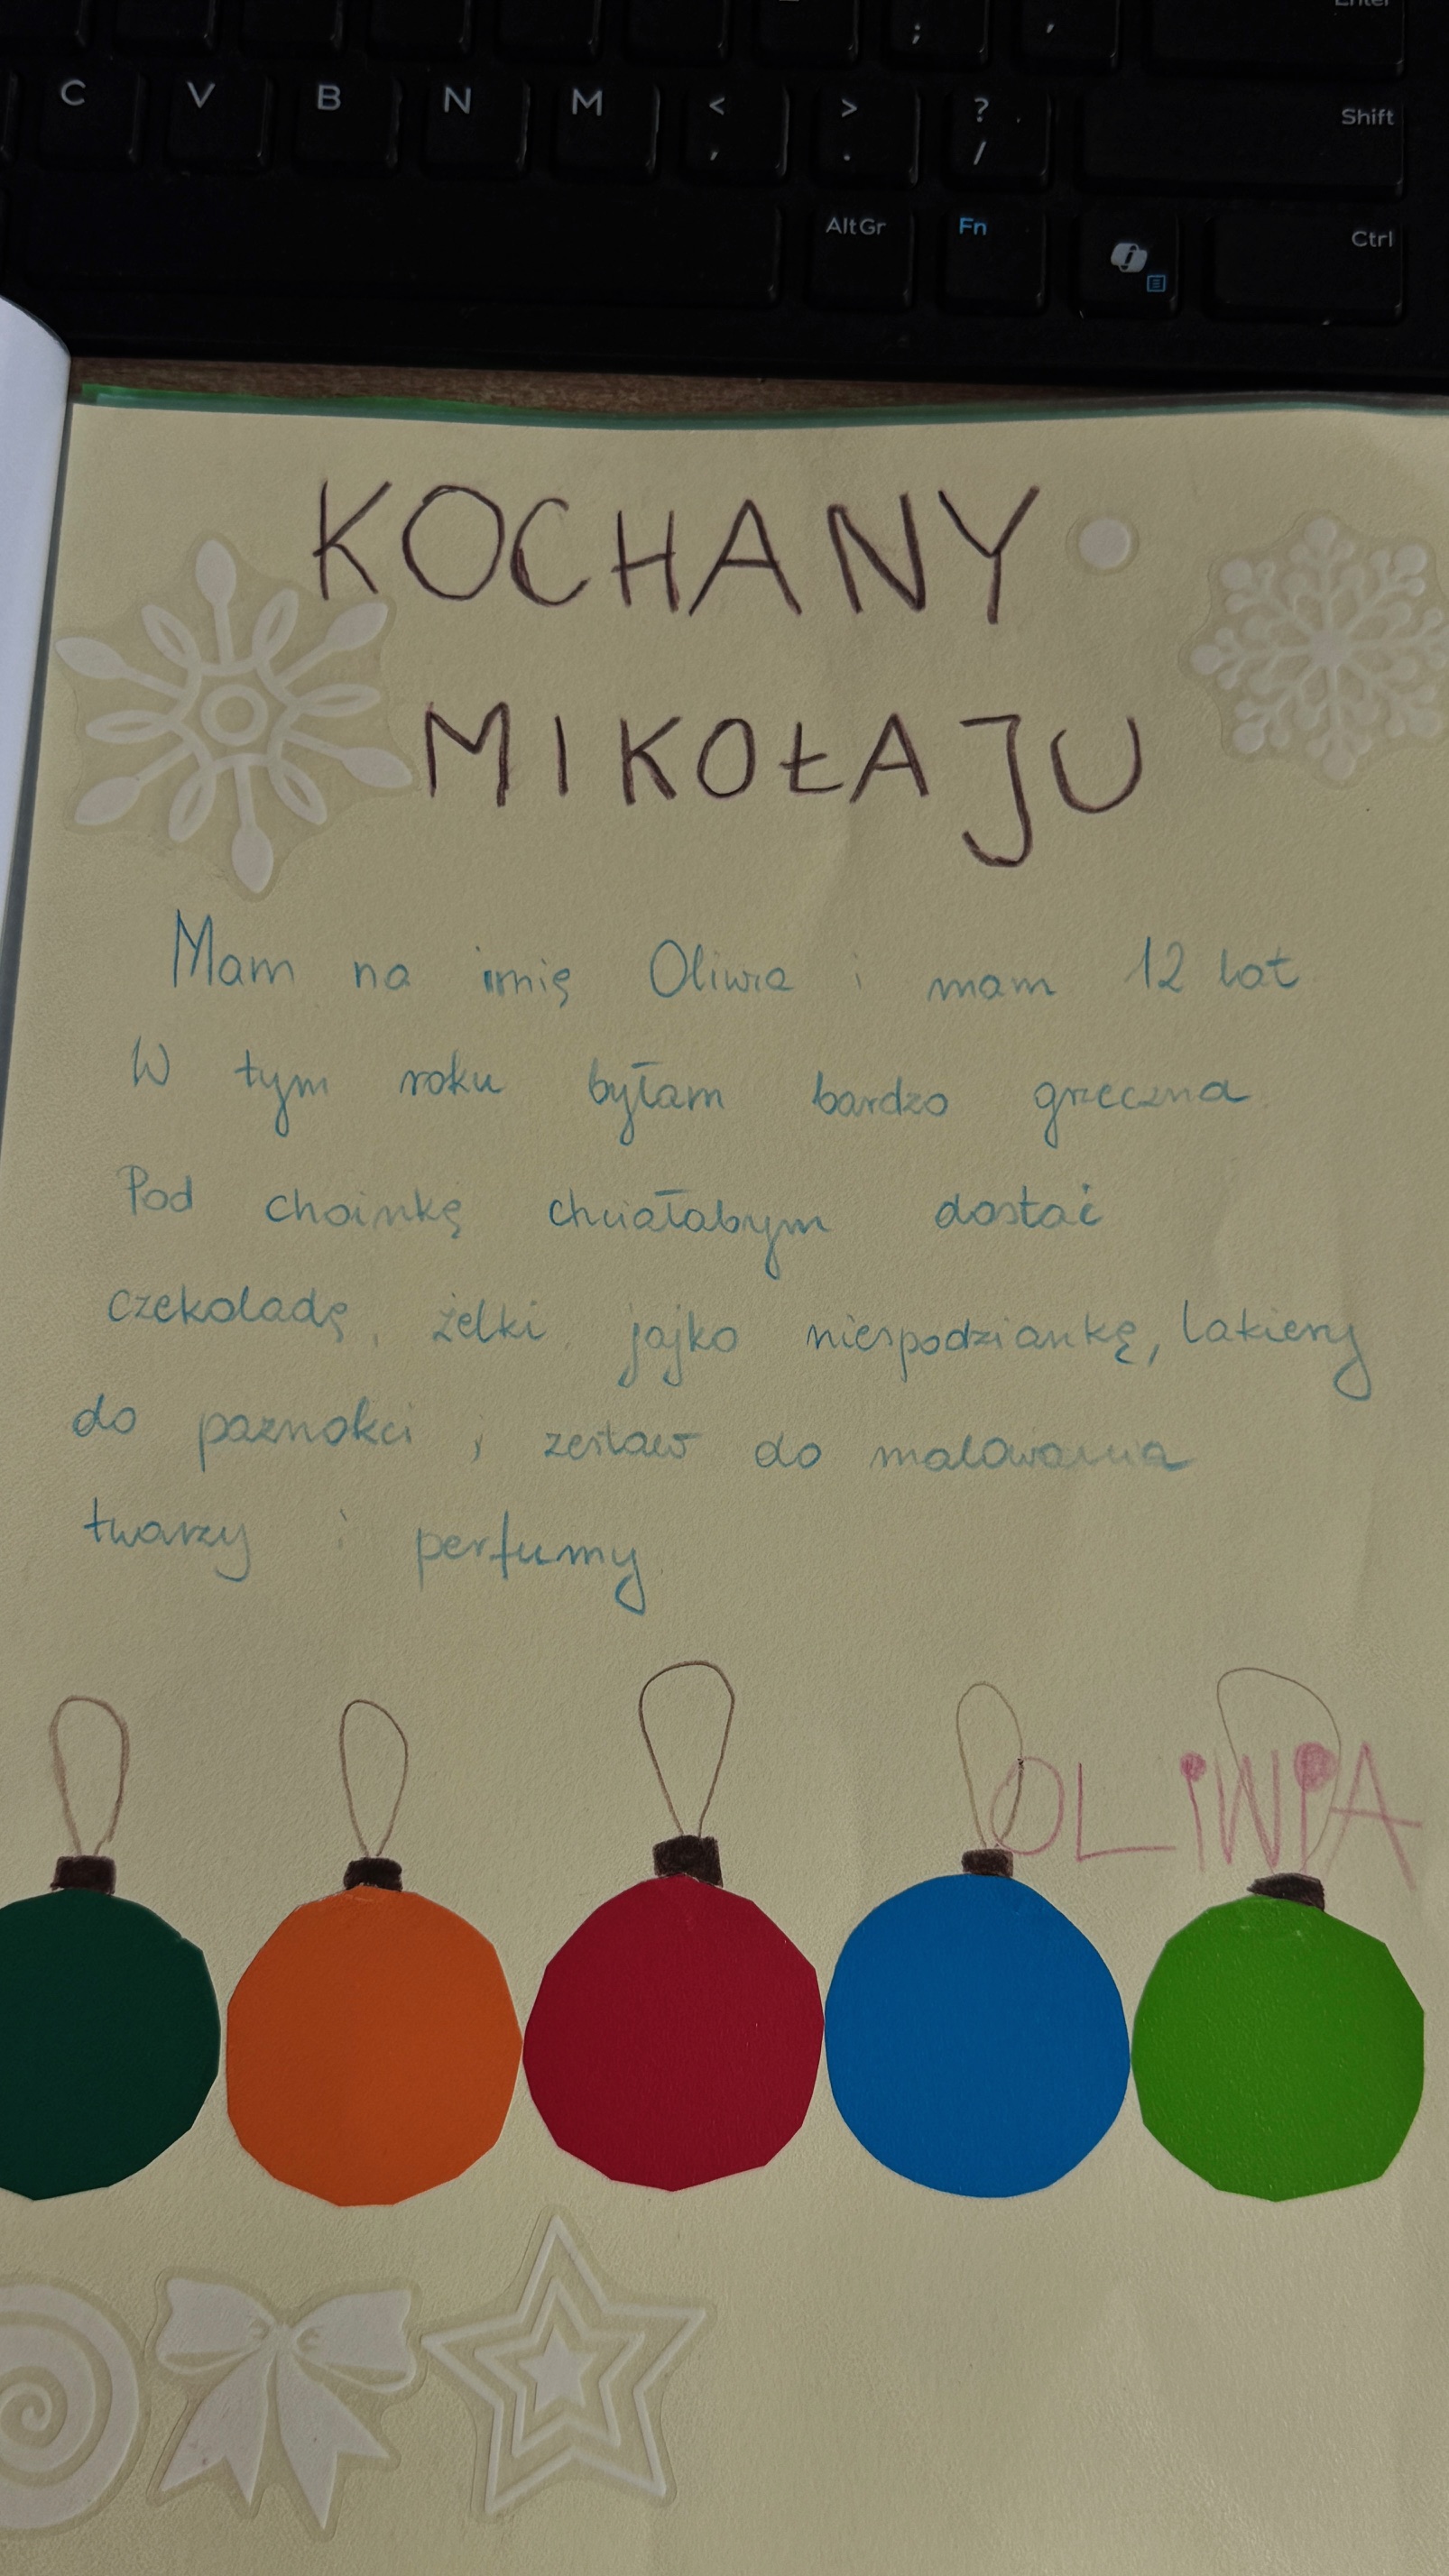 Enter
; ,
C V B N M < , > . ? / Shift
AltGr Fn Ctrl
KOCHANY
MIKOŁAJU
Mam na imię Oliwia i mam 12 lat
W tym roku byłam bardzo grzeczna
Pod choinkę chciałabym dostać
czekoladę, żelki jajko niespodziankę, lakiery
do paznokci, zestaw do malowania
twarzy i perfumy
OLiWiA